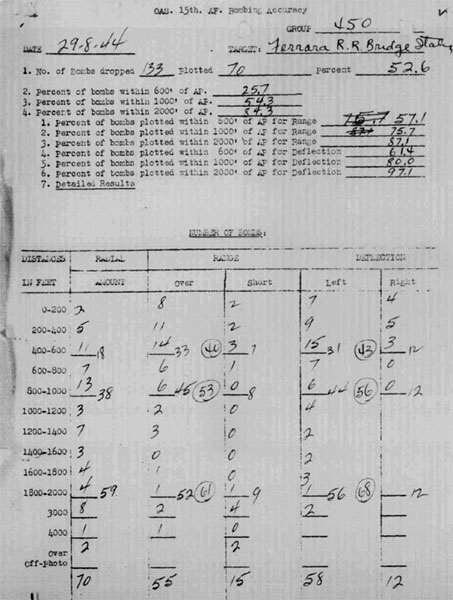 OAS. 15th. AF. Bombing Accuracy
GROUP 450
DATE 29-8-44 TARGET: Ferrara R.R. Bridge Italy
1. No. of Bombs dropped 133 Plotted 70 Percent 52.6
2. Percent of bombs within 600' of AP. 25.7
3. Percent of bombs within 1000' of AP. 54.3
4. Percent of bombs within 2000' of AP. 84.3
1. Percent of bombs plotted within 600' of AP for Range 57.1
2. Percent of bombs plotted within 1000' of AP for Range 75.7
3. Percent of bombs plotted within 2000' of AP for Range 87.1
4. Percent of bombs plotted within 600' of AP for Deflection 61.4
5. Percent of bombs plotted within 1000' of AP for Deflection 80.0
6. Percent of bombs plotted within 2000' of AP for Deflection 97.1
7. Detailed Results
NUMBER OF BOMBS:
DISTANCES RADIAL RANGE DEFLECTION
IN FEET AMOUNT Over Short Left Right
0-200 2 8 2 7 4
200-400 5 11 2 9 5
400-600 11 18 14 33 40 3 7 15 31 43 3 12
600-800 7 6 1 7 0
800-1000 13 38 6 45 53 0 8 6 44 56 0 12
1000-1200 3 2 0 4
1200-1400 7 3 0 2
1400-1600 3 0 0 2
1600-1800 4 1 0 3
1800-2000 4 59 1 52 61 1 9 1 56 68 12
3000 8 2 4 2
4000 1 1 0
Over 2 2
Off-photo
70 55 15 58 12